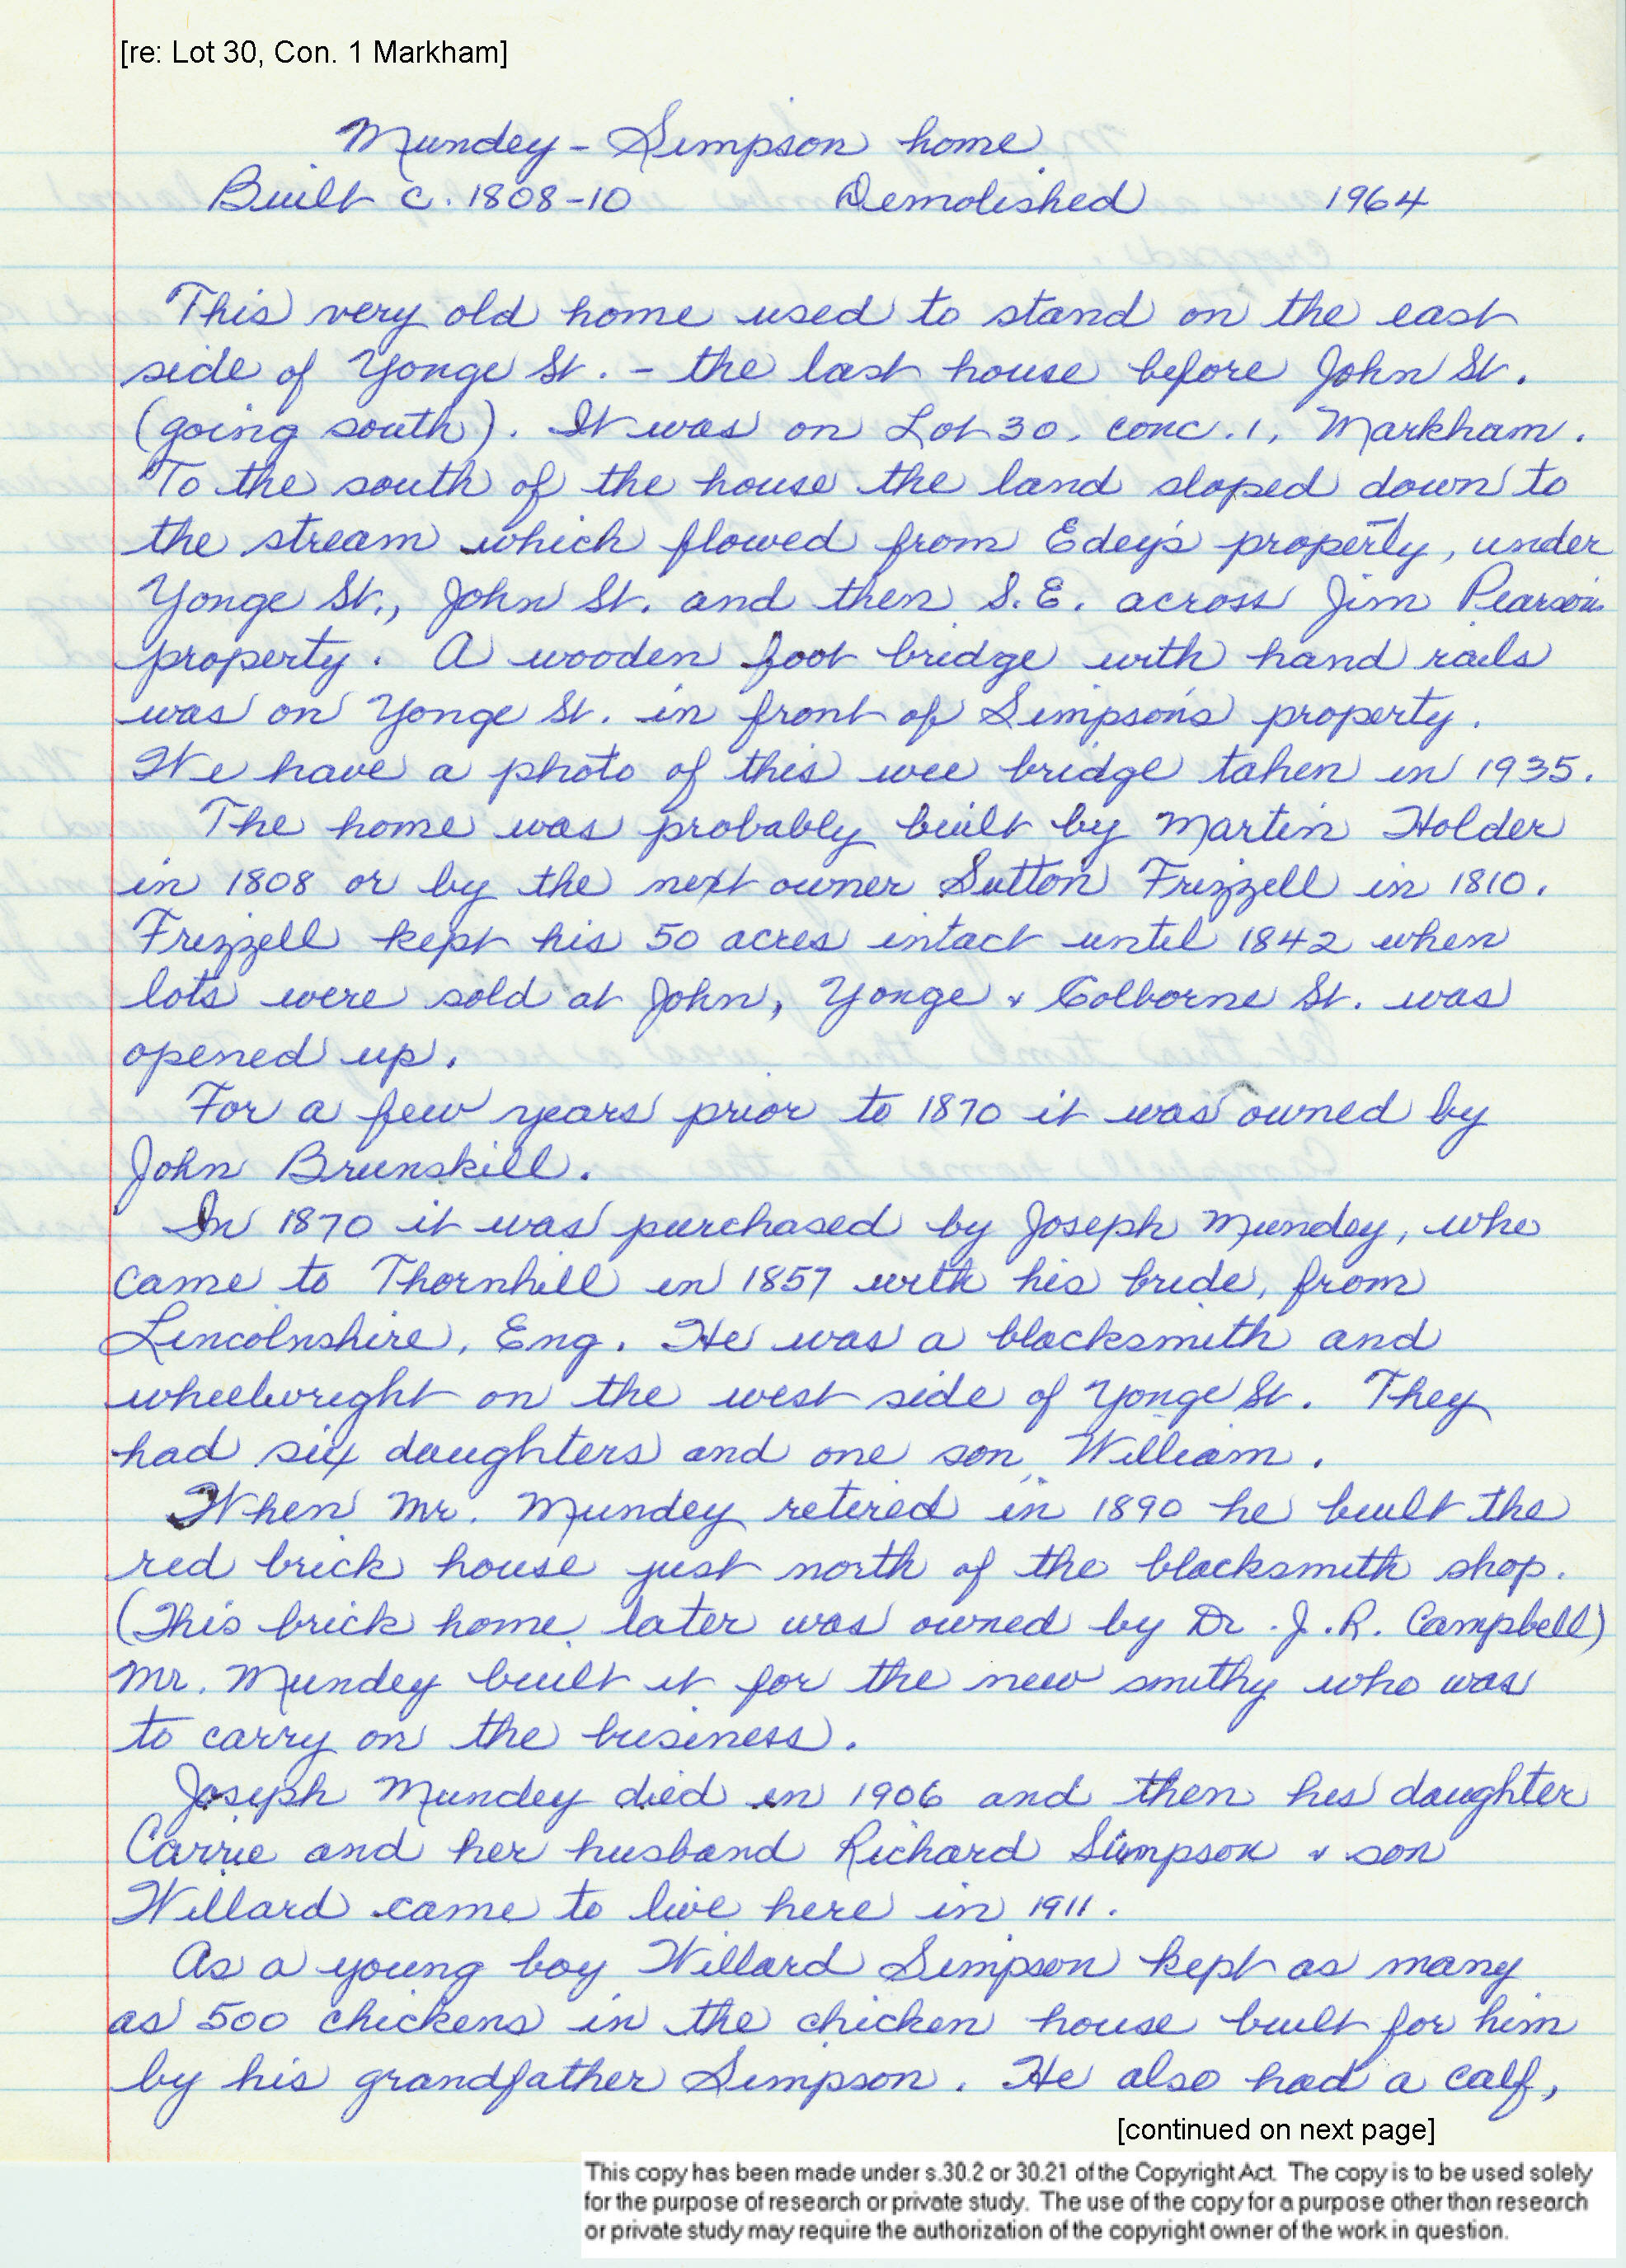 [re: Lot 30, Con. 1 Markham]
Mundey - Simpson home
Built c. 1808-10 Demolished 1964
This very old home used to stand on the east
side of Yonge St. - the last house before John St.
(going south). It was on Lot 30, conc. 1, Markham.
To the south of the house the land sloped down to
the stream which flowed from Edey's property, under
Yonge St., John St. and then S.E. across Jim Pearson's
property. A wooden foot bridge with hand rails
was on Yonge St. in front of Simpson's property.
We have a photo of this wee bridge taken in 1935.
The home was probably built by Martin Holder
in 1808 or by the next owner Sutton Frizzell in 1810.
Frizzell kept his 50 acres intact until 1842 when
lots were sold at John, Yonge & Colborne St. was
opened up.
For a few years prior to 1870 it was owned by
John Brunskill.
In 1870 it was purchased by Joseph Mundey, who
came to Thornhill in 1857 with his bride, from
Lincolnshire, Eng. He was a blacksmith and
wheelwright on the west side of Yonge St. They
had six daughters and one son, William.
When Mr. Mundey retired in 1890 he built the
red brick house just north of the blacksmith shop.
(This brick home later was owned by Dr. J.R. Campbell)
Mr. Mundey built it for the new smithy who was
to carry on the business.
Joseph Mundey died in 1906 and then his daughter
Carrie and her husband Richard Simpson & son
Willard came to live here in 1911.
As a young boy Willard Simpson kept as many
as 500 chickens in the chicken house built for him
by his grandfather Simpson. He also had a calf,
[continued on next page]
This copy has been made under s.30.2 or 30.21 of the Copyright Act. The copy is to be used solely
for the purpose of research or private study. The use of the copy for a purpose other than research
or private study may require the authorization of the copyright owner of the work in question.